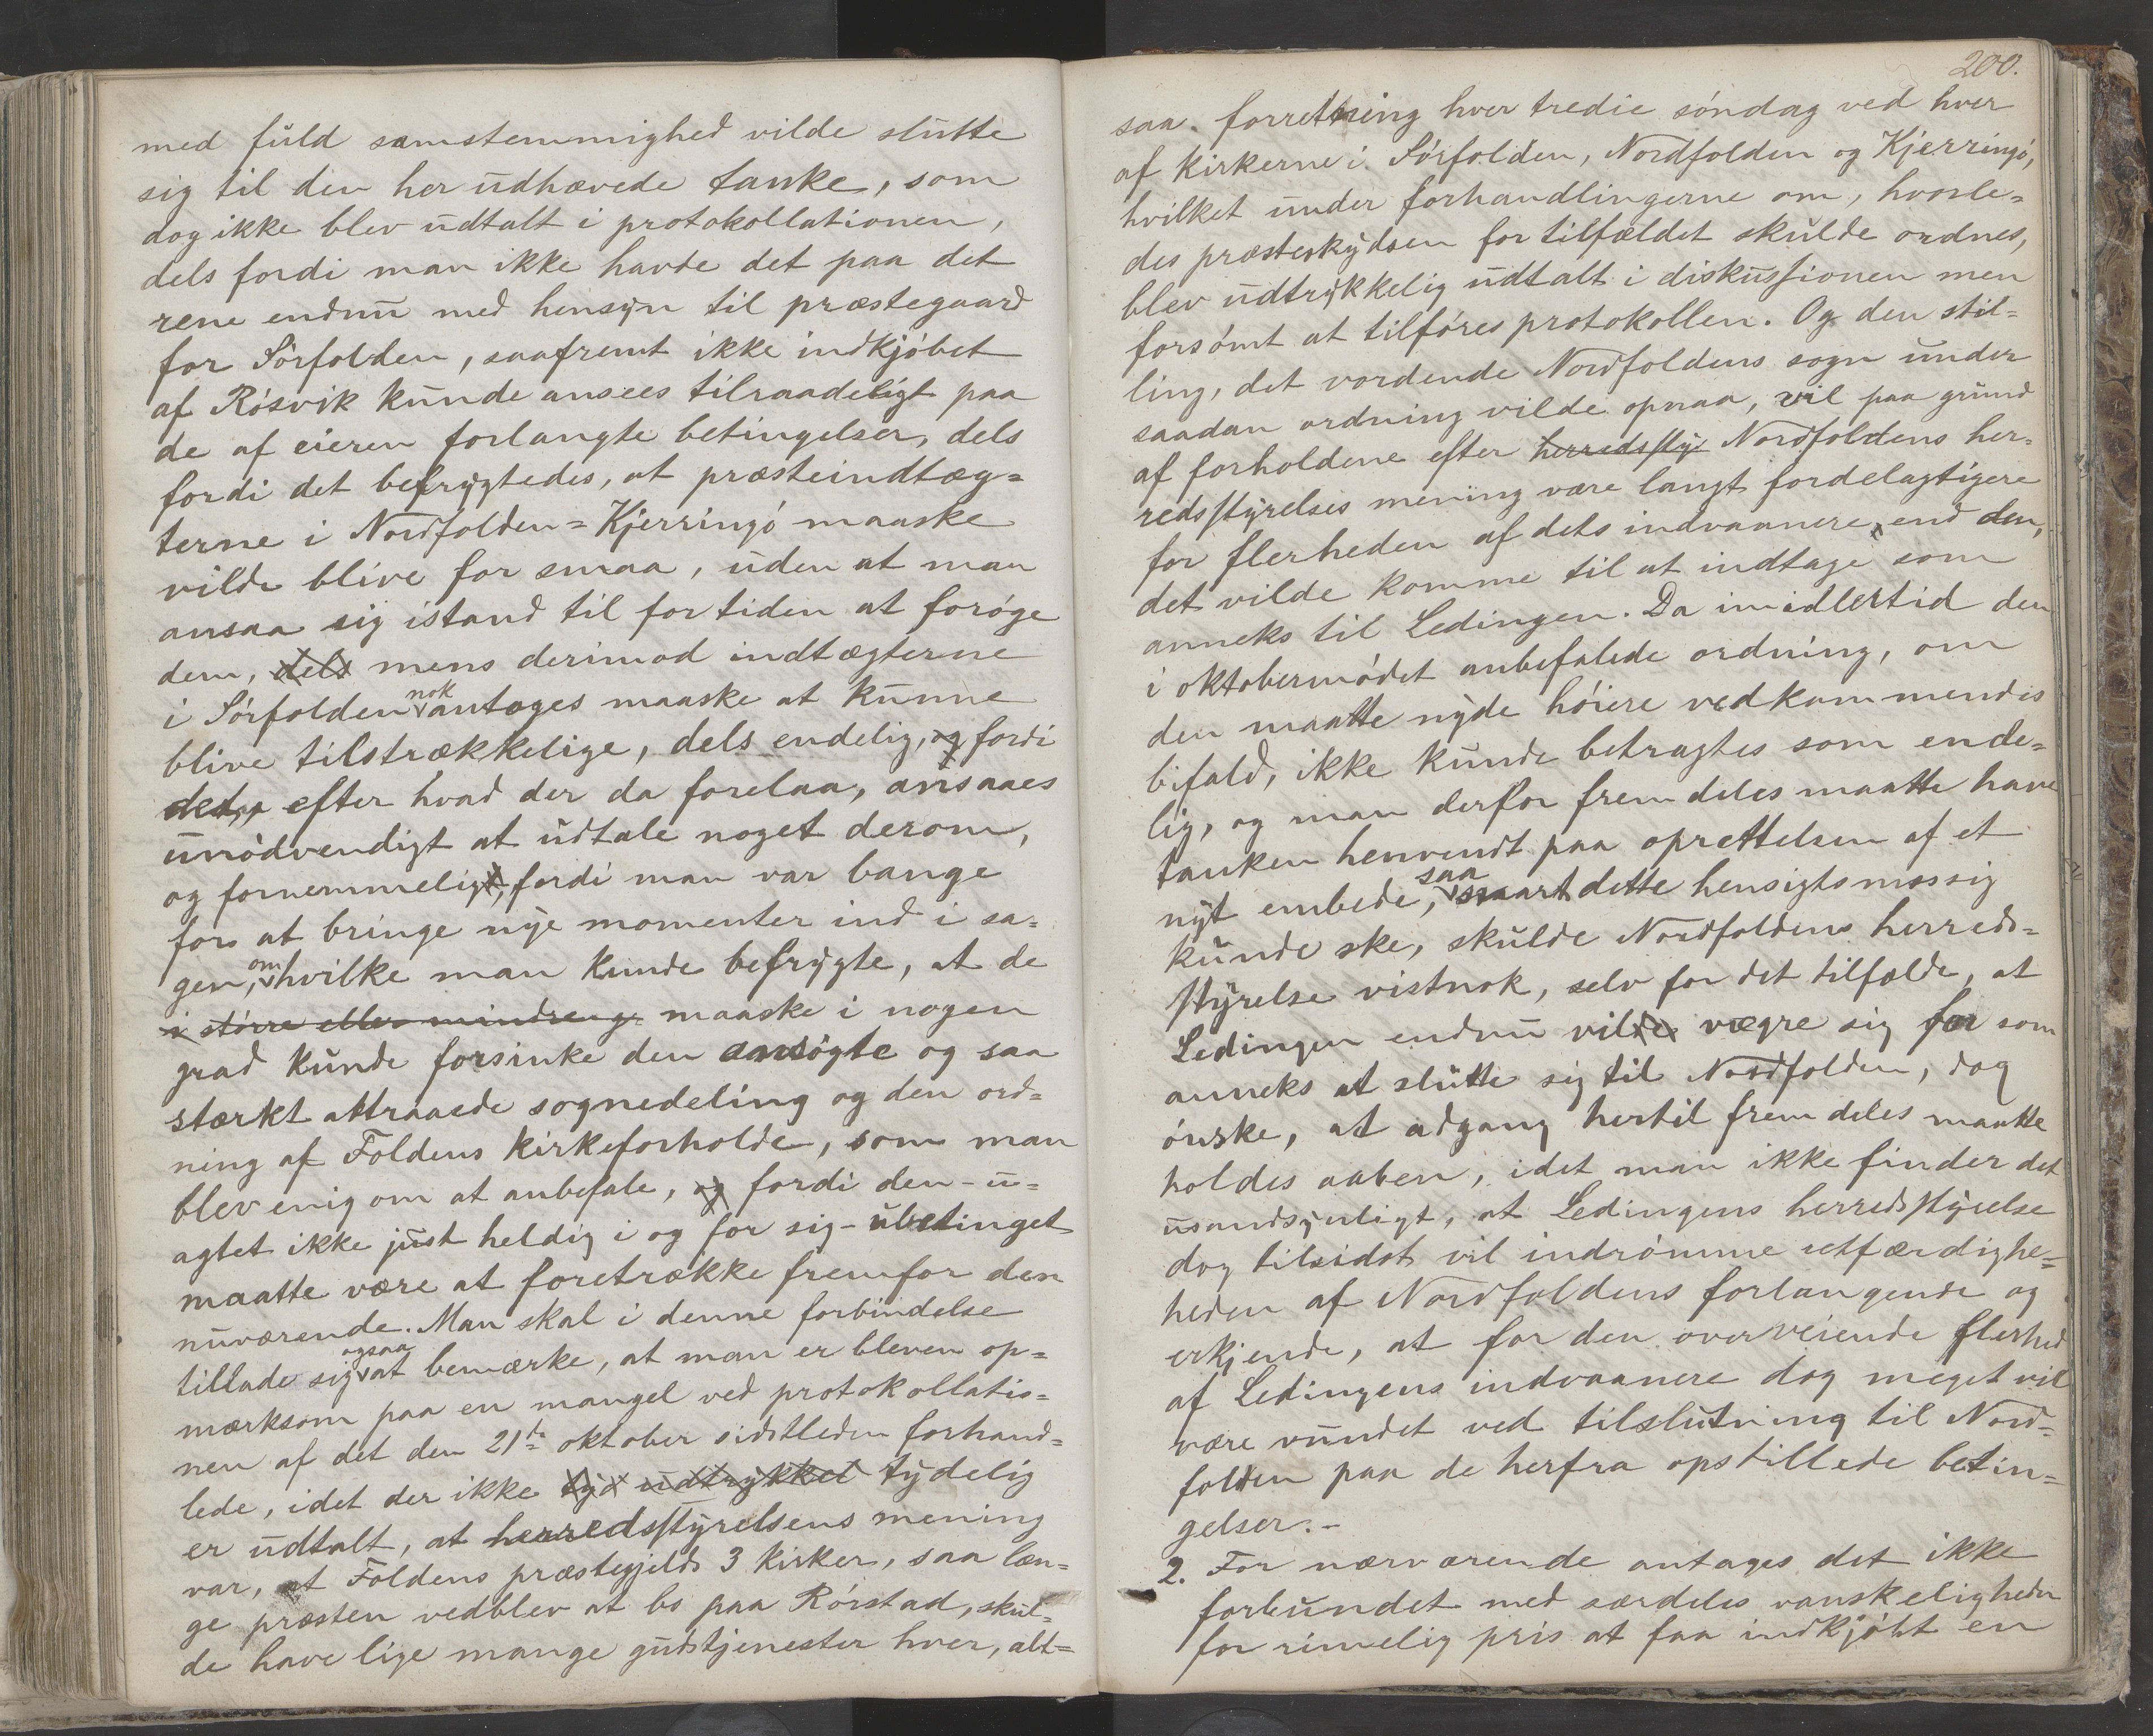 med fuld samstemmighed vilde slutte
sig til den her udhævede tanke, som
dog ikke blev udtalt i protokollationen,
dels fordi man ikke havde det paa det
rene endnu med hensyn til præstegaard
for Sórfolden, saafremt ikke indkjóbet
af Rósvik kunde ansees tilraadeligt paa
de af eieren forlangte betingelser, dels
fordi det befrygtedes, at præsteindtæg=
terne i Nordfolden=Kjerringó maaske
vilde blive for smaa, uden at man
ansaa sig istand til for tiden at foróge
dem, dels mens derimod indtægterne
i Sórfolden nok antages maaske at kunne
blive tilstrækkelige, dels endelig, og fordi
det, efter hvad der da forelaa, ansaaes
unódvendigt at udtale noget derom,
og fornemmeligt, fordi man var bange
for at bringe nye momenter ind i sa=
gen, om hvilke man kunde befrygte, at de
i stórre eller mindre g maaske i nogen
grad kunde forsinke den ansógte og saa
stærkt attraaede sognedeling og den ord=
ning af Foldens kirkeforholde, som man
blev enig om at anbefale, og fordi den - u=
agtet ikke just heldig i og for sig - ubetinget
maatte være at foretrække fremfor den
nuværende. Man skal i denne forbindelse
tillade sig ogsaa at bemærke, at man er bleven op=
mærksom paa en mangel ved protokollatio=
nen af det den 21de oktober sidstleden forhand=
lede, idet der ikke tyd udtrykket tydelig
er udtalt, at herredsstyrelsens mening
var, at Foldens præstegjelds 3 kirker, saa læn=
ge præsten vedblev at bo paa Rórstad, skul=
de have lige mange gudstjenester hver, alt=
200.
saa. forretning hver tredie sóndag ved hver
af kirkerne i Sórfolden, Nordfolden og Kjerringó,
hvilket under forhandlingerne om, hvorle=
des præsteskydsen for tilfældet skulde ordnes,
blev udtrykkelig udtalt i diskussionen men
forsómt at tilfóres protokollen. Og den stil=
ling, det vordende Nordfoldens sogn under
saadan ordning vilde opnaa, vil paa grund
af forholdene efter herredssty Nordfoldens her=
redsstyrelses mening være langt fordelagtigere
for flerheden af dets indvaanere, end den,
det vilde komme til at indtage som
anneks til Ledingen. Da imidlertid den
i oktobermódet anbefalede ordning, om
den maatte nyde hóiere vedkommendes
bifald, ikke kunde betragtes som ende=
lig, og man derfor fremdeles maatte have
tanken henvendt paa oprettelsen af et
nyt embede, saa snart dette hensigtsmæssig
kunde ske, skulde Nordfoldens herreds=
styrelse vistnok, selv for det tilfælde, at
Ledingen endnu vilde vægre sig for som
anneks at slutte sig til Nordfolden, dog
ónske, at adgang hertil fremdeles maatte
holdes aaben, idet man ikke finder det
usandsynligt, at Ledingens herredsstyrelse
dog tilsidst vil indrómme retfærdighe=
heden af Nordfoldens forlangende og
erkjende, at for den overveiende flerhed
af Ledingens indvaanere dog meget vil
være vundet ved tilslutning til Nord=
folden paa de herfra opstillede betin=
gelser.-
2. For nærværende antages det ikke
forbundet med særdeles vanskeligheder
for rimelig pris at faa indkjóbt en